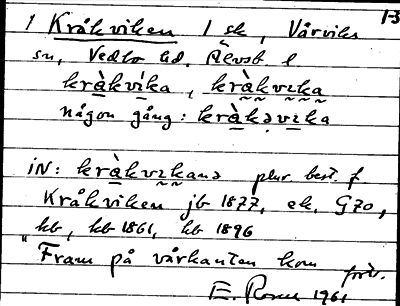 1 Kråkviken 1 sk, Vårviks 1-3
sn, Vedbo hd. Älvsb. l
kràkvíka, kràkvɩka
någon gång: kràkəvɩka
iN: kràkvɩkanə plur best. f
Kråkviken jb 1877, ek. G70,
kb, kb 1861, kb 1896
"Fram på vårkanten kom
forts.
E. 1961